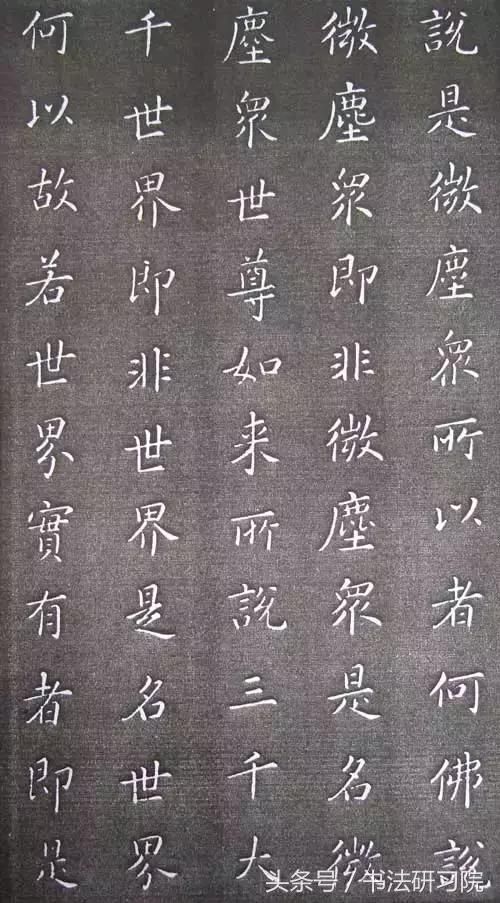 說是微塵眾所以者何佛說
微塵眾即非微塵眾是名微
塵眾世尊如来所說三千大
千世界即非世界是名世界
何以故若世界實有者即是
头条号/书法研习院